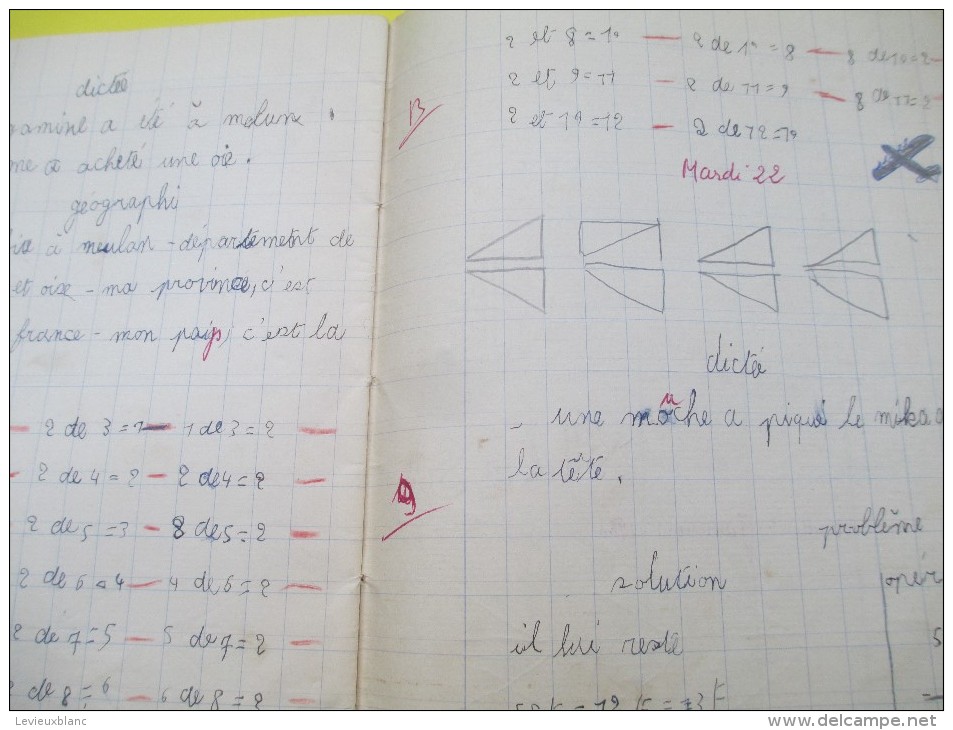 dictée
a été à melun.
me a acheté une oie.
géographi
à meulan - département de
et oise - ma province, c'est
france - mon pays, c'est la
2 de 3 = 1 - 1 de 3 = 2
2 de 4 = 2 - 2 de 4 = 2
2 de 5 = 3 - 8 de 5 = 2
2 de 6 = 4 - 4 de 6 = 2
2 de 7 = 5 - 5 de 7 = 2
2 de 8 = 6 - 6 de 8 = 2
2 et 8 = 10 - 2 de 10 = 8 - 8 de 10 = 2
2 et 9 = 11 - 2 de 11 = 9 - 8 de 11 = 2
2 et 10 = 12 - 2 de 12 = 10
B
Mardi 22
dicté
- une mouche a piqué le mika a
la tête.
problême
solution
opér
il lui reste
5
Levieuxblanc
delcampe.net